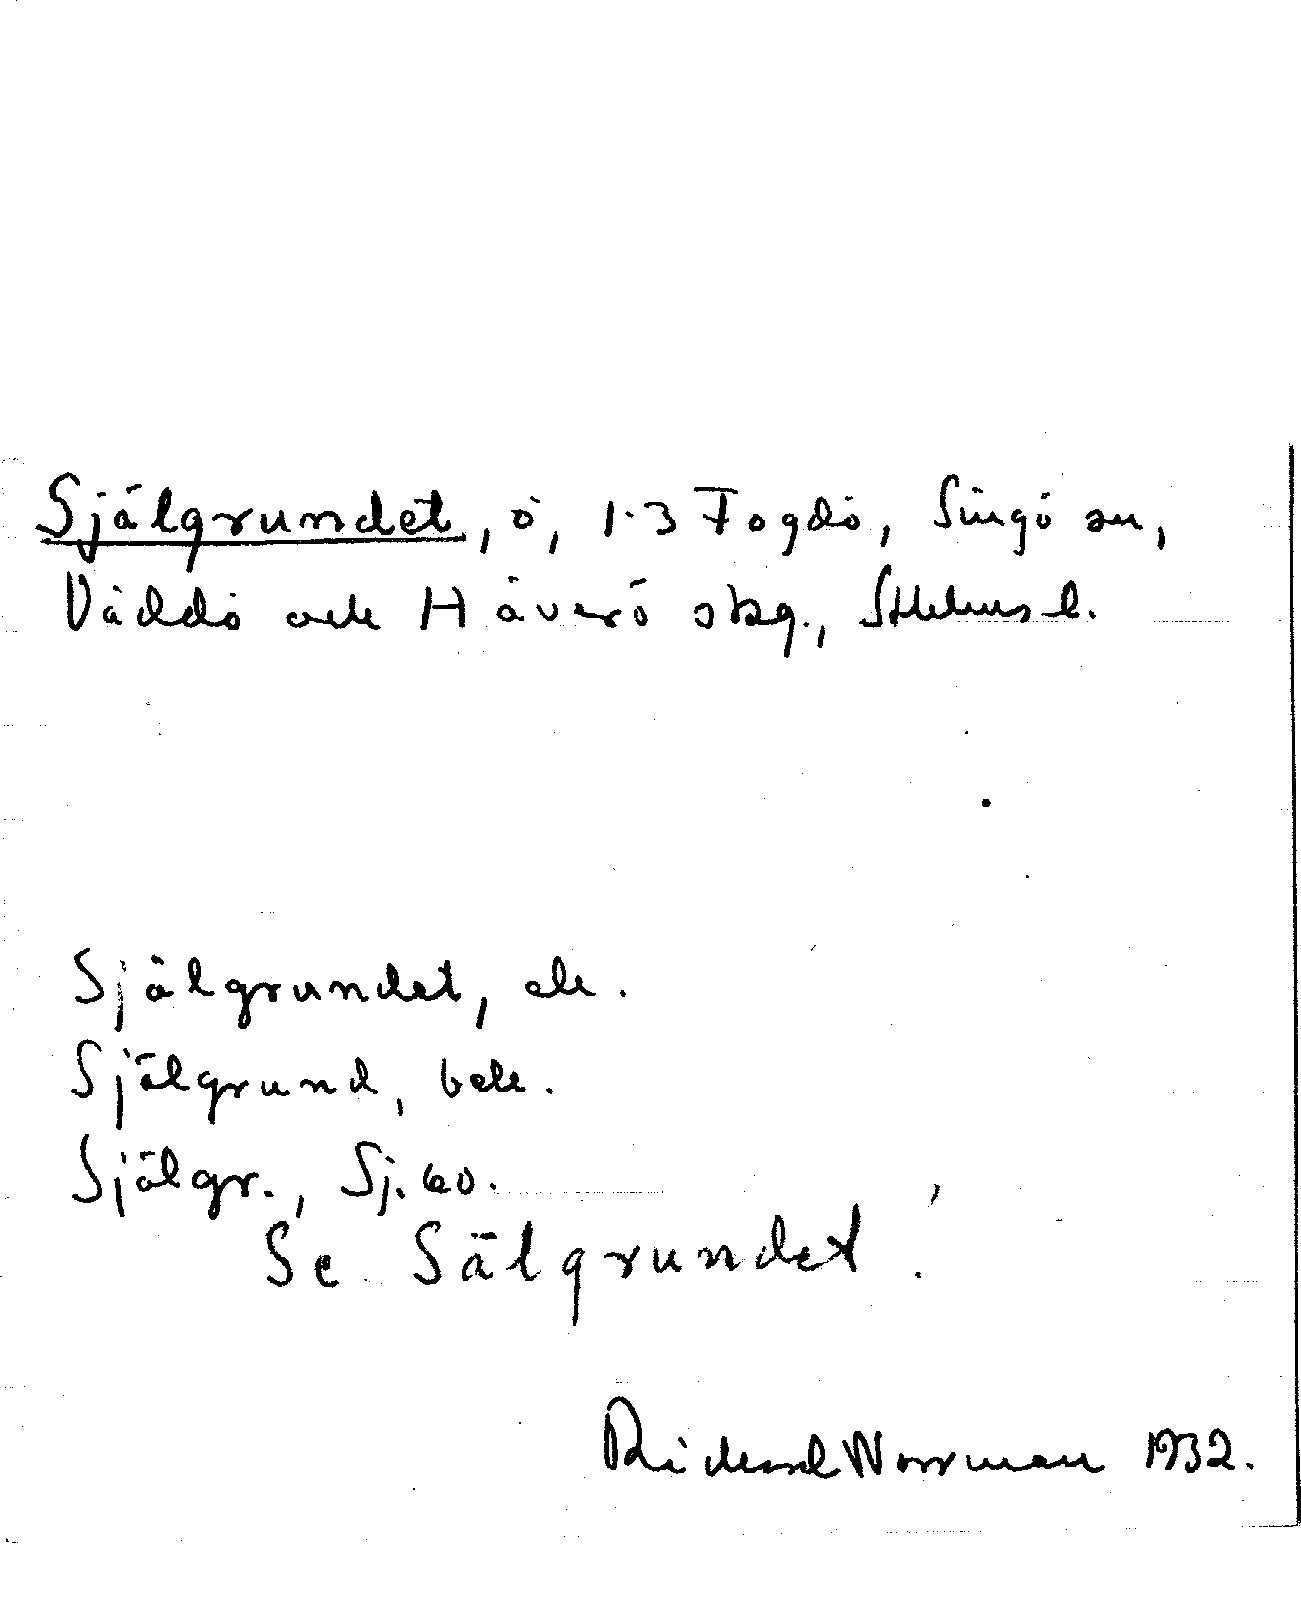 Själgrundet, ö, 1-3 Fogdö, Singö sn,
Väddö och Häverö skg., Sthlms l.
Själgrundet, ek.
Själgrund, bek.
Själgr., Sj. 60.
Se Sälgrundet.
Rickard Norrman 1932.